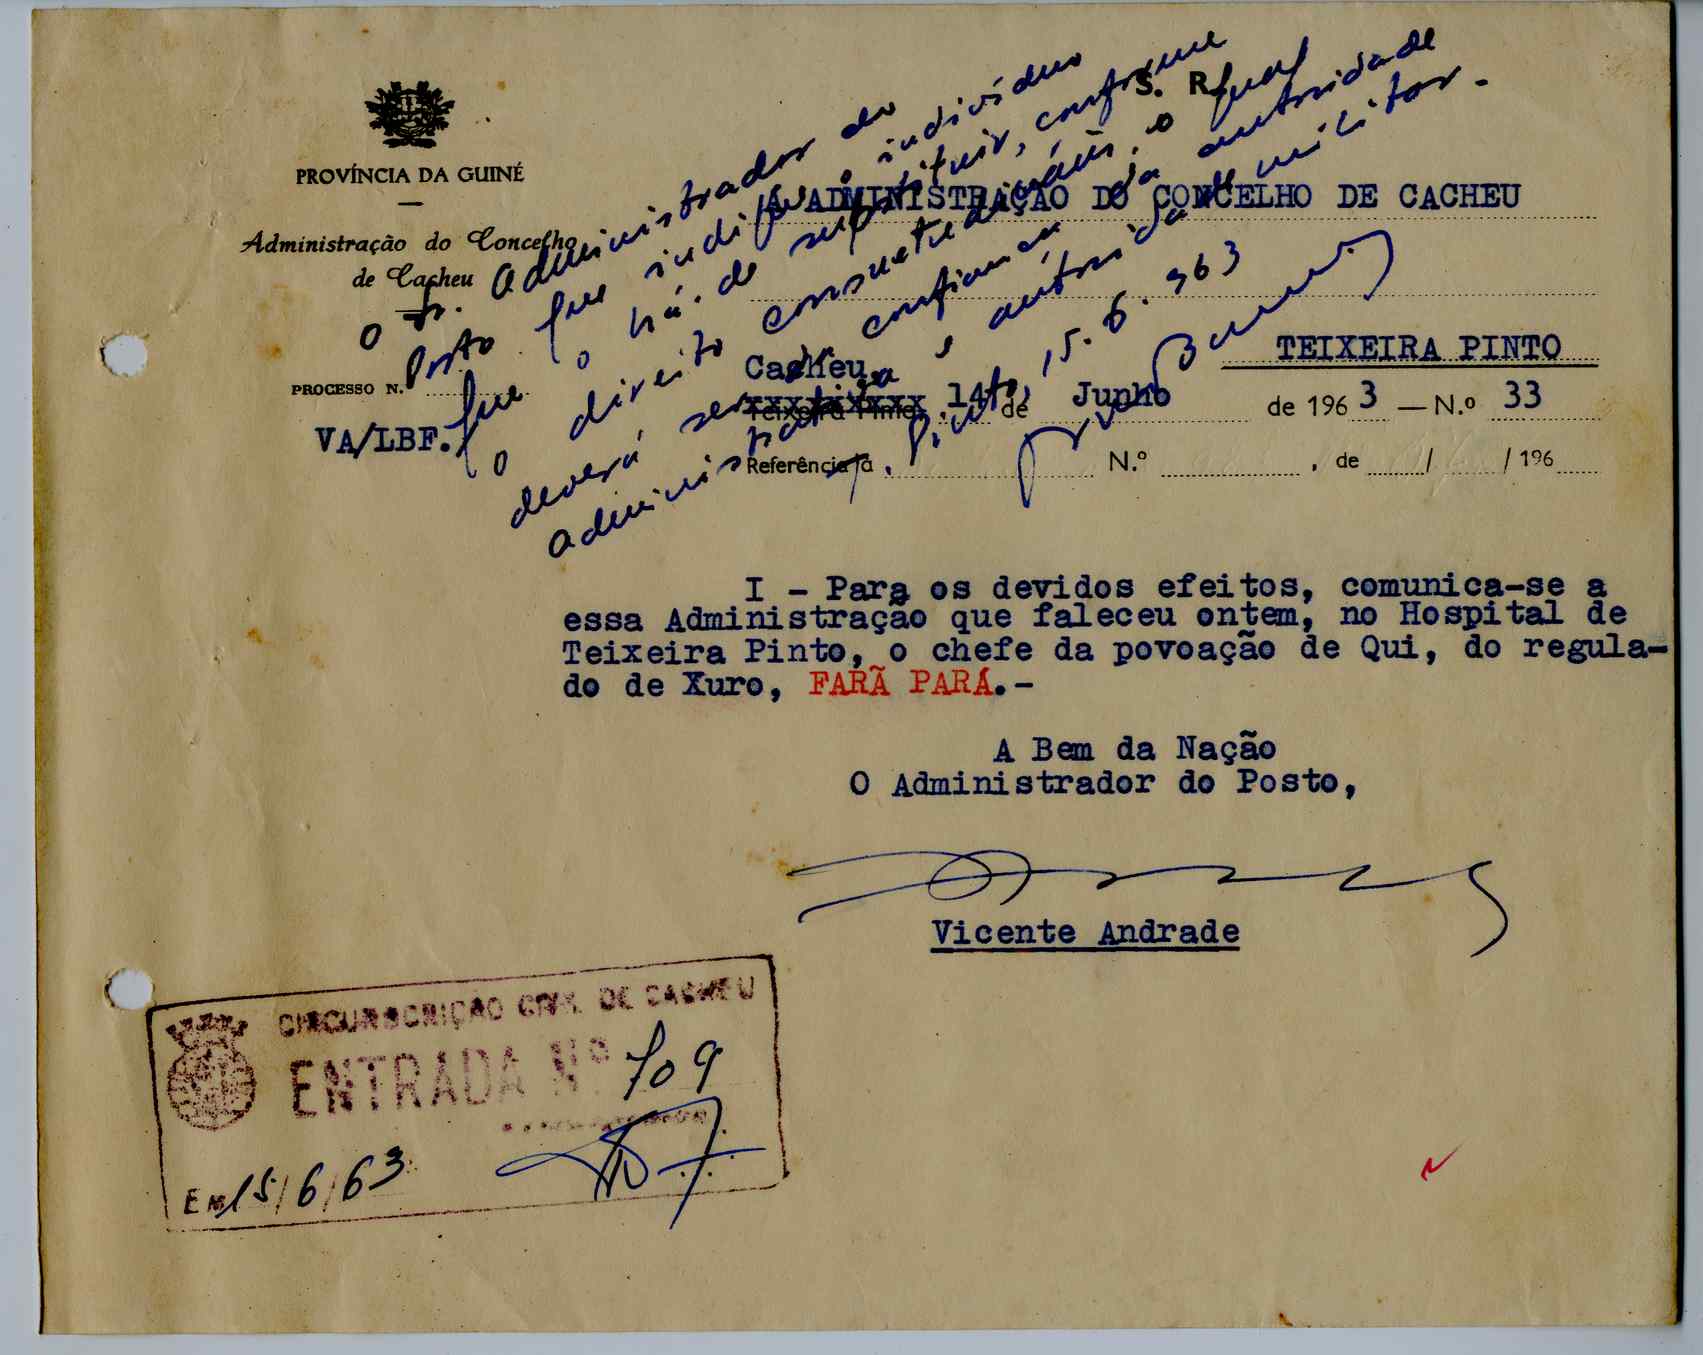 S. R.
PROVÍNCIA DA GUINÉ
Administração do Concelho
de Cacheu
À ADMINISTRAÇÃO DO CONCELHO DE CACHEU
TEIXEIRA PINTO
PROCESSO N.º
VA/LBF.
Cacheu,
Teixeira Pinto, 14 de Junho de 1963 — N.º 33
Referência N.º , de / / 196
O Sr. Administrador do
Posto que indique o indivíduo
que o há-de substituir, conforme
o direito consuetudinário, o qual
deverá ser da confiança da autoridade
administrativa e autoridade militar.
15.6.963
I - Para os devidos efeitos, comunica-se a
essa Administração que faleceu ontem, no Hospital de
Teixeira Pinto, o chefe da povoação de Qui, do regula-
do de Xuro, FARÃ PARÁ.-
A Bem da Nação
O Administrador do Posto,
Vicente Andrade
CIRCUNSCRIÇÃO CIVIL DE CACHEU
ENTRADA Nº 709
Em 15/6/63